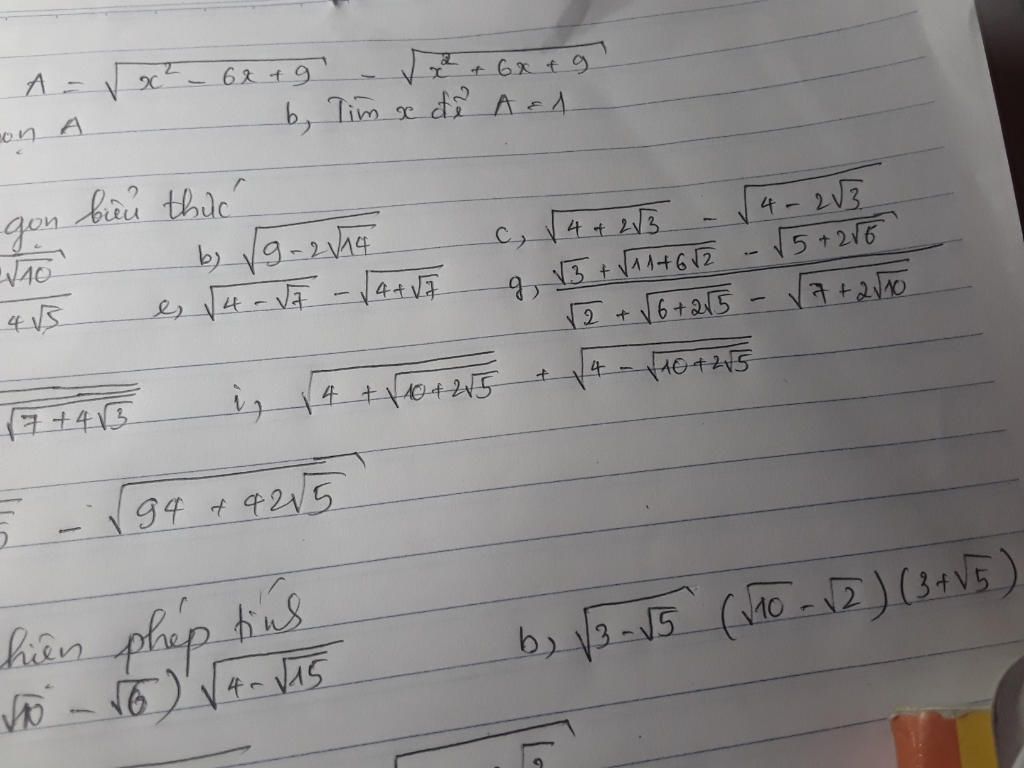 A = √(x² - 6x + 9) - √(x² + 6x + 9)
A b, Tìm x để A = 1
gọn biểu thức
√10 b, √(9 - 2√14) c, √(4 + 2√3) - √(4 - 2√3)
4√5 e, √(4 - √7) - √(4 + √7) g, (√3 + √(11 + 6√2) - √(5 + 2√6)) / (√2 + √(6 + 2√5) - √(7 + 2√10))
√(7 + 4√3) i, √(4 + √(10 + 2√5)) + √(4 - √(10 + 2√5))
- √(94 + 42√5)
phép tính
√10 - √6) √(4 - √15) b, √(3 - √5) (√10 - √2)(3 + √5)